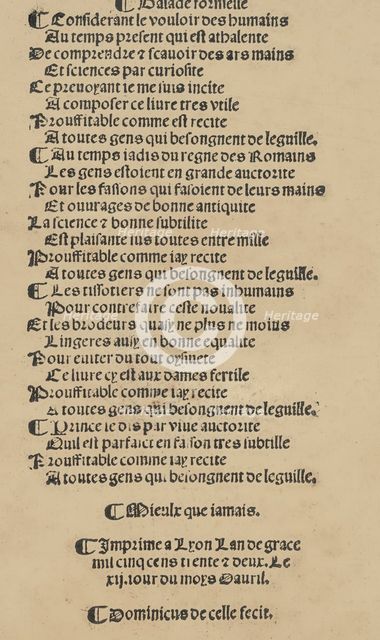 Balade formelle
Considerant le vouloir des humains
Au temps present qui est athalente
De comprendre ⁊ scauoir des ars mains
Et sciences par curiosite
Ce preuoyant ie me suis incite
A composer ce liure tres vtile
Prouffitable comme est recite
A toutes gens qui besongnent de leguille.
Au temps iadis du regne des Romains
Les gens estoient en grande auctorite
Pour les fassons qui fasoient de leurs mains
Et ouurages de bonne antiquite
La science ⁊ bonne subtilite
Est plaisante sus toutes entre mille
Prouffitable comme iay recite
A toutes gens qui besongnent de leguille.
Les tissotiers ne sont pas inhumains
Pour contrefaire ceste noualite
Et les brodeurs quasy ne plus ne moins
Lingeres ausy en bonne equalite
Pour euiter du tout oysiuete
Ce liure cy est aux dames fertile
Prouffitable comme iay recite
A toutes gens qui besongnent de leguille.
Prince ie dis par viue auctorite
Quil est parfaict en fasson tres subtille
Prouffitable comme iay recite
A toutes gens qui besongnent de leguille.
Mieulx que iamais.
Imprime a Lyon Lan de grace
mil cinq cens trente ⁊ deux. Le
xij. iour du moys Dauril.
Dominicus de celle fecit.
Heritage
Heritage
Heritage
Heritage